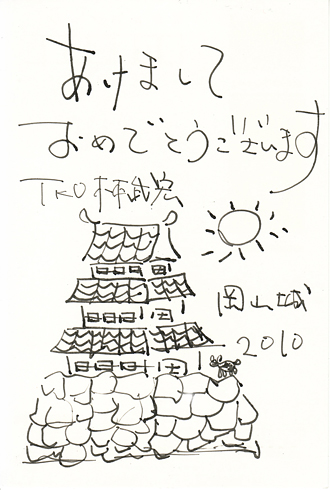 あけまして
おめでとうございます
TKO 木本武宏
岡山城
2010